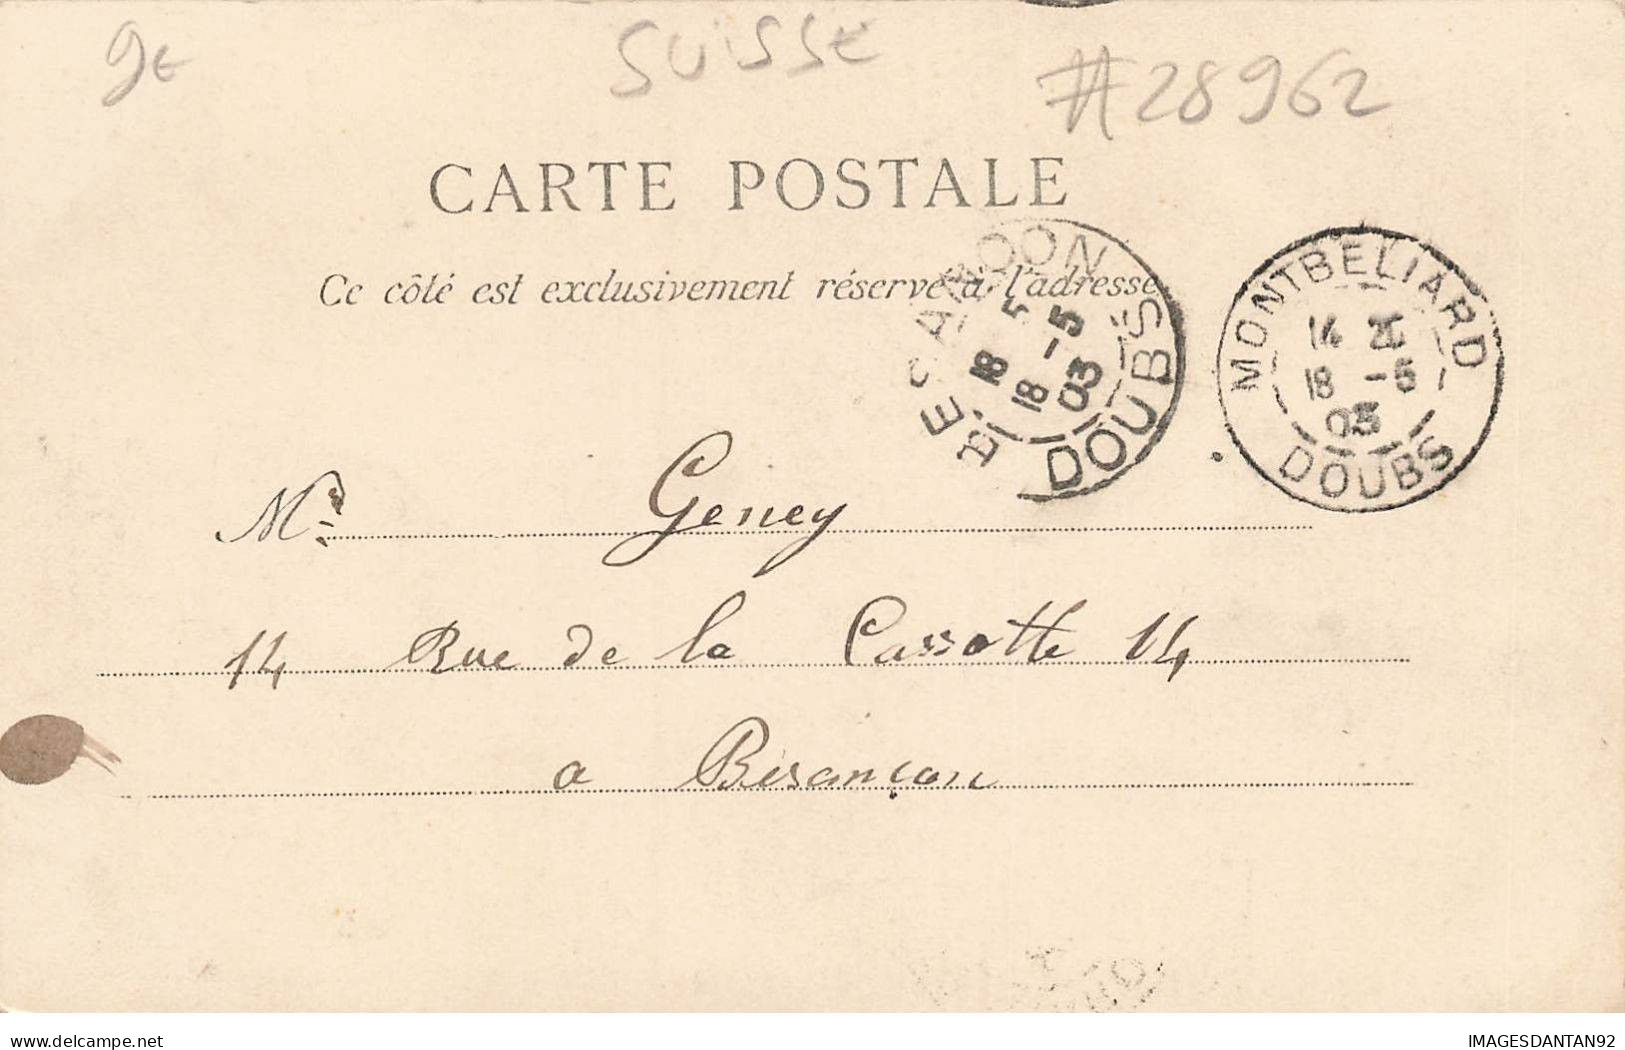 9€
SUISSE
#28962
CARTE POSTALE
Ce côté est exclusivement réservé à l'adresse
BESANCON
18 5
18 -5
03
DOUBS
MONTBELIARD
14
18 -5
03
DOUBS
Mr Geney
14 Rue de la Cassotte 14
a Besançon
delcampe.net
IMAGESDANTAN92